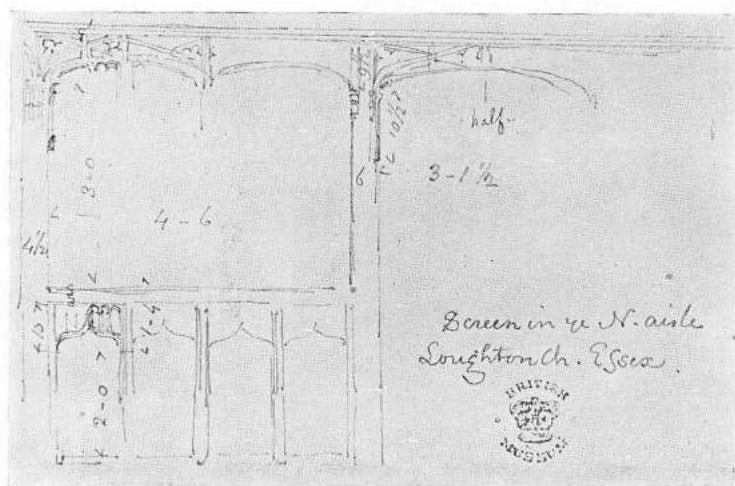 half
10½
6
3-1½
3-0
4-6
4½
Screen in ye N. aisle
Loughton Ch. Essex.
1-4
2-0
BRITISH
MUSEUM